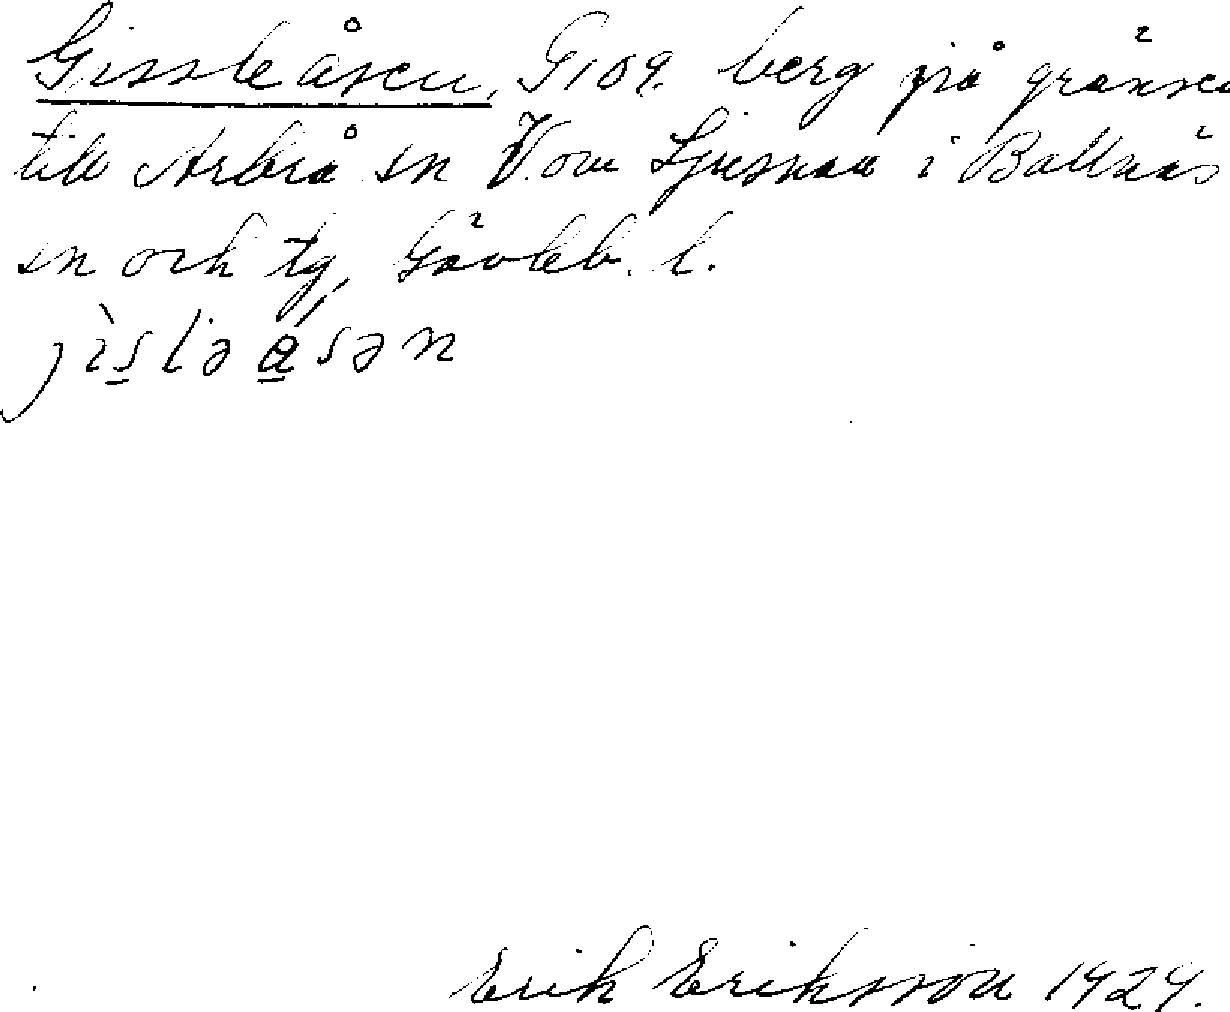 Gissleåsen, G109. berg på gränsen
till Arbrå sn V. om Ljusnan i Bollnäs
sn och tg, Gävleb. l.
jìslə ås̀ən
Erik Eriksson 1929.